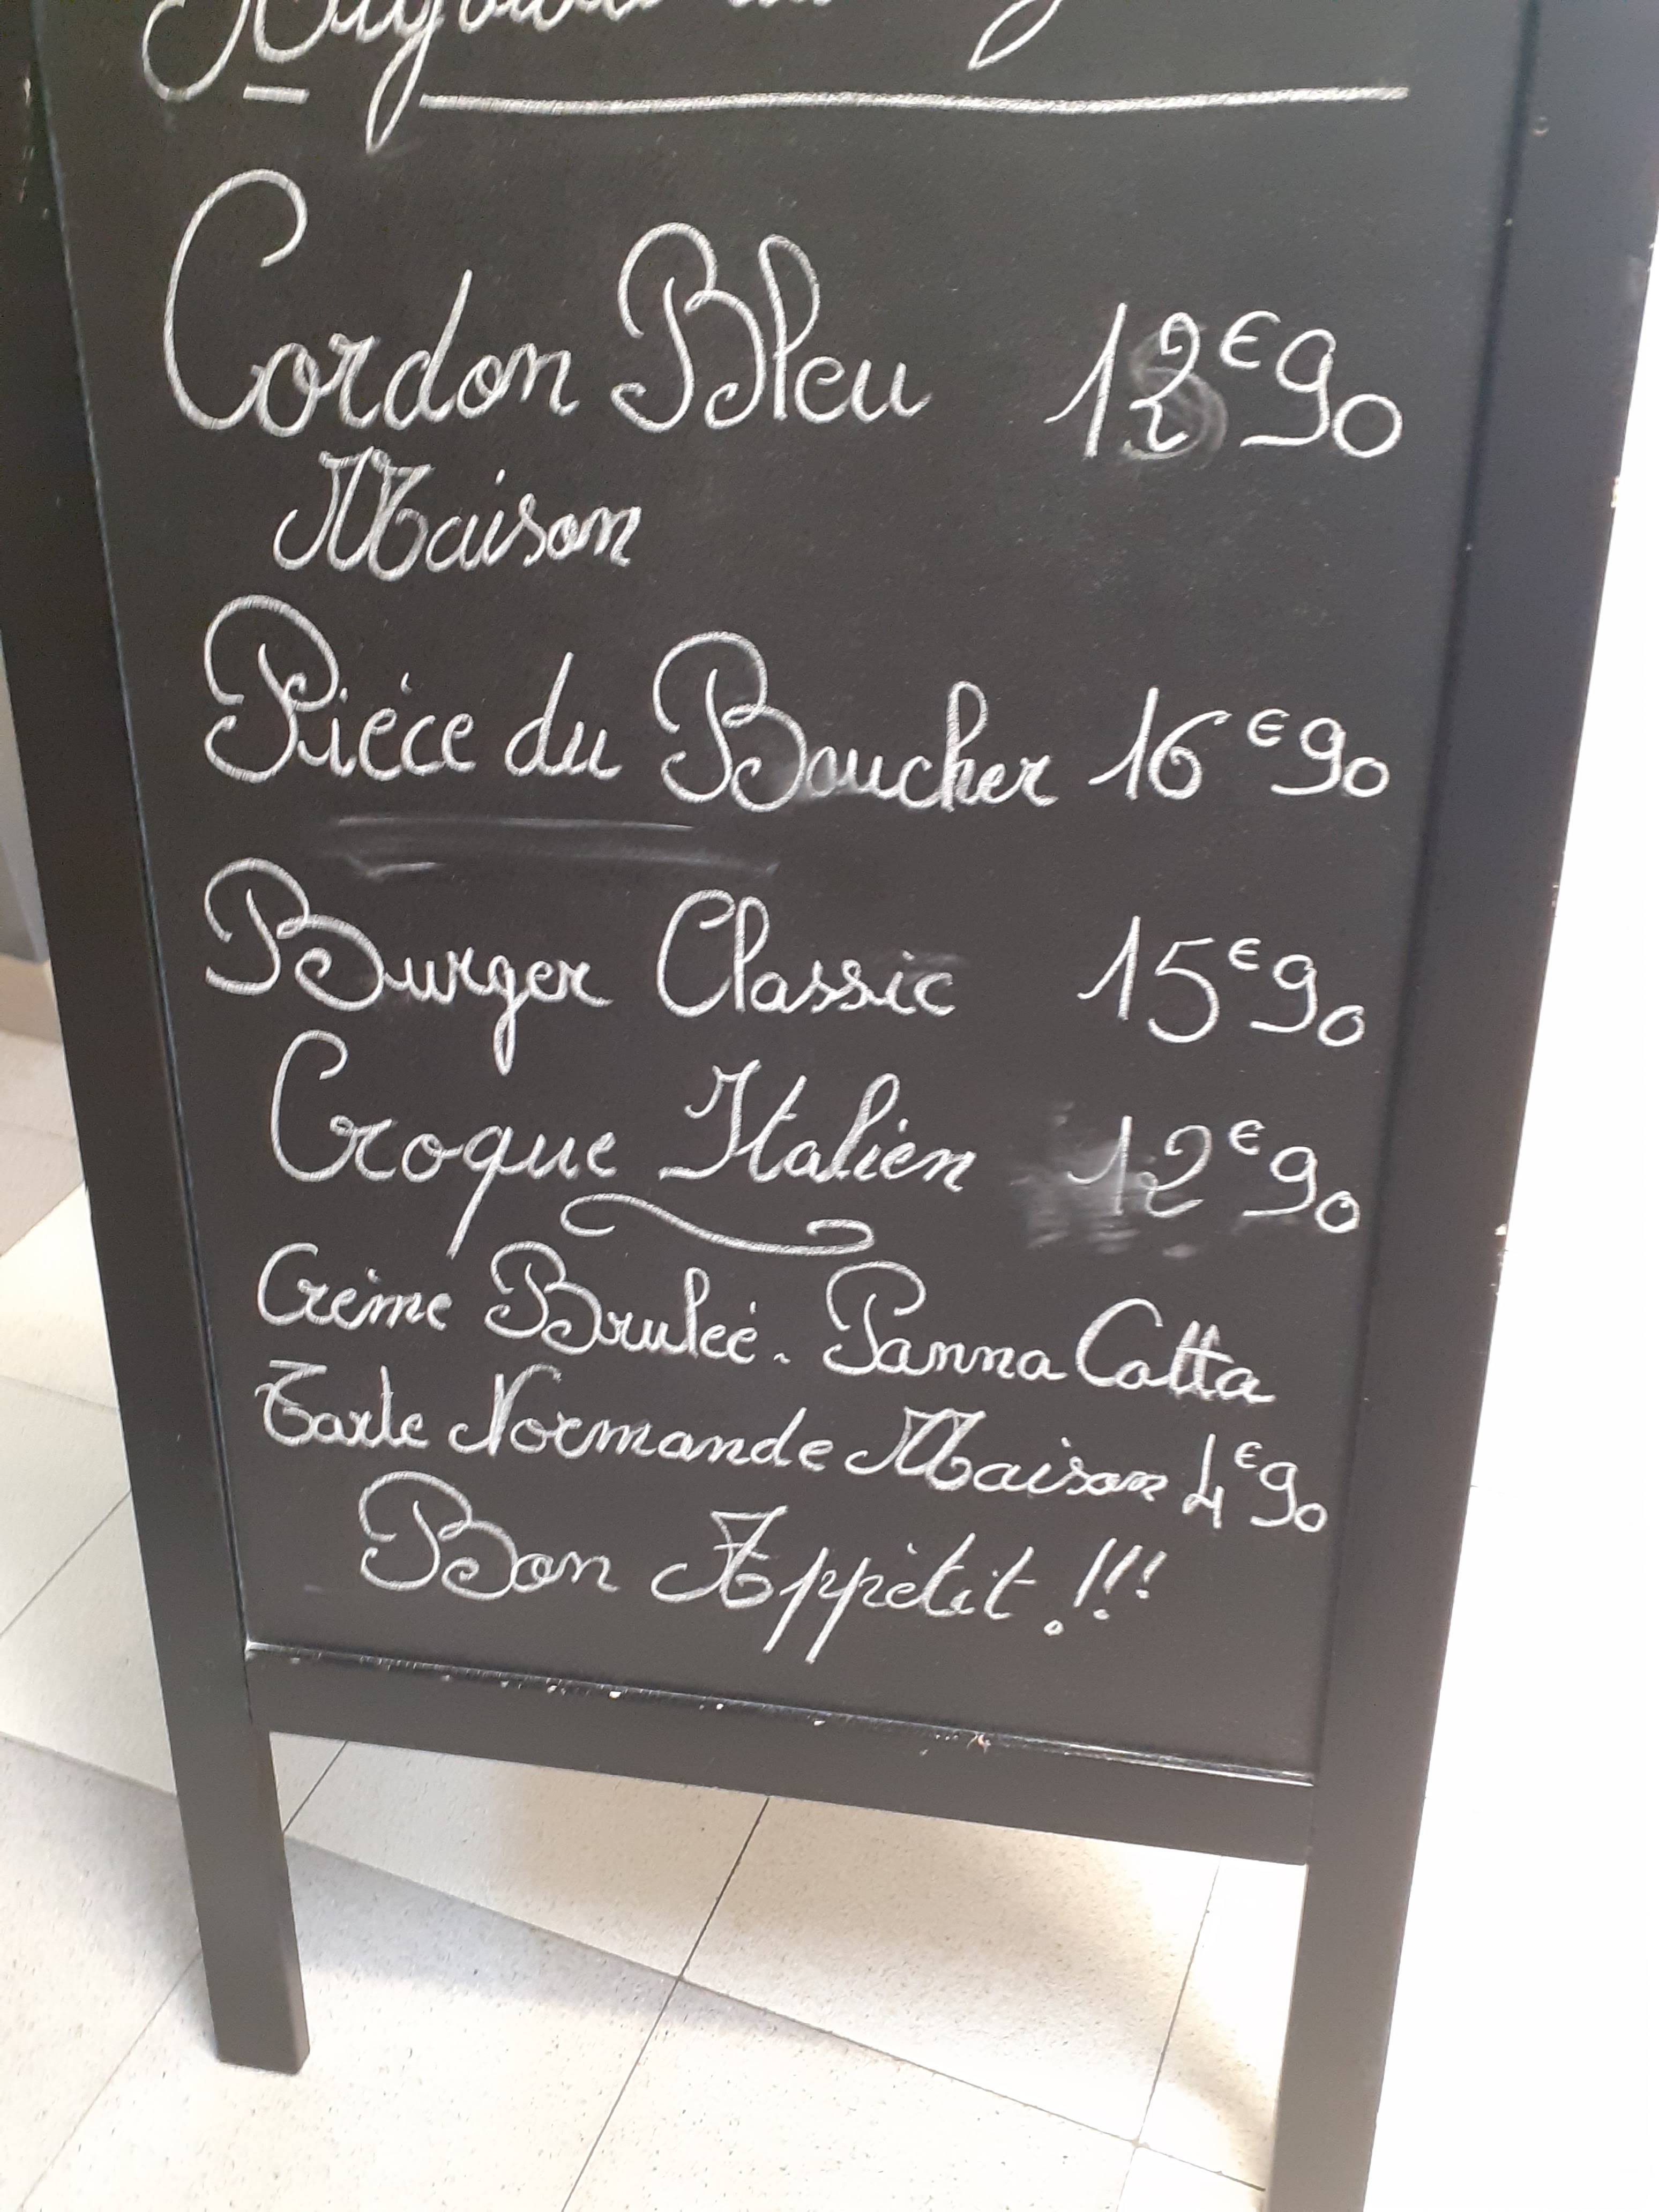 Cordon Bleu 12€90
Maison
Piéce du Boucher 16€90
Burger Classic 15€90
Croque Italien 12€90
Crème Brulée - Panna Cotta
Tarte Normande Maison 4€90
Bon Appètit !!!